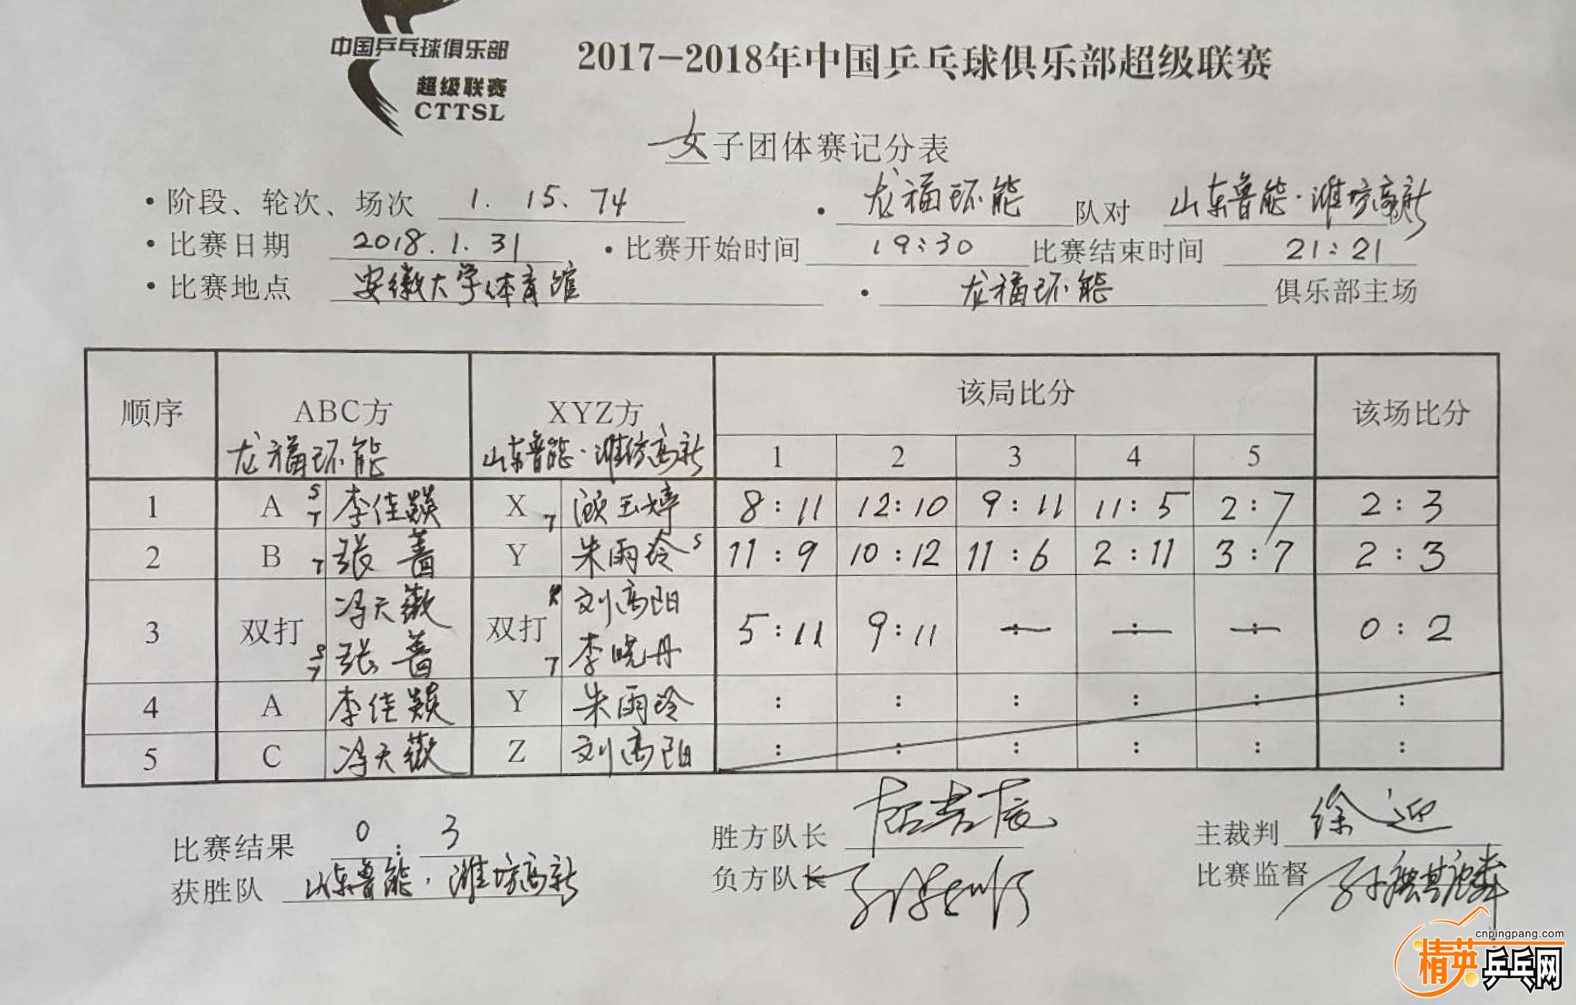 中国乒乓球俱乐部
超级联赛
CTTSL
2017-2018年中国乒乓球俱乐部超级联赛
女子团体赛记分表
·阶段、轮次、场次 1. 15. 74 · 龙福环能 队对 山东鲁能·潍坊高新
·比赛日期 2018.1.31 ·比赛开始时间 19:30 比赛结束时间 21:21
·比赛地点 安徽大学体育馆 · 龙福环能 俱乐部主场
顺序 ABC方 龙福环能 XYZ方 山东鲁能·潍坊高新 该局比分 该场比分
1 2 3 4 5
1 A S T 李佳燚 X T 顾玉婷 8:11 12:10 9:11 11:5 2:7 2:3
2 B T 张蔷 Y 朱雨玲 S 11:9 10:12 11:6 2:11 3:7 2:3
3 双打 冯天薇 S T 张蔷 双打 刘高阳 T 李晓丹 5:11 9:11 : : : 0:2
4 A 李佳燚 Y 朱雨玲 : : : : : :
5 C 冯天薇 Z 刘高阳 : : : : : :
比赛结果 0:3 胜方队长 主裁判 徐迎
获胜队 山东鲁能·潍坊高新 负方队长 比赛监督
cnpingpang.com
精英乒乓网